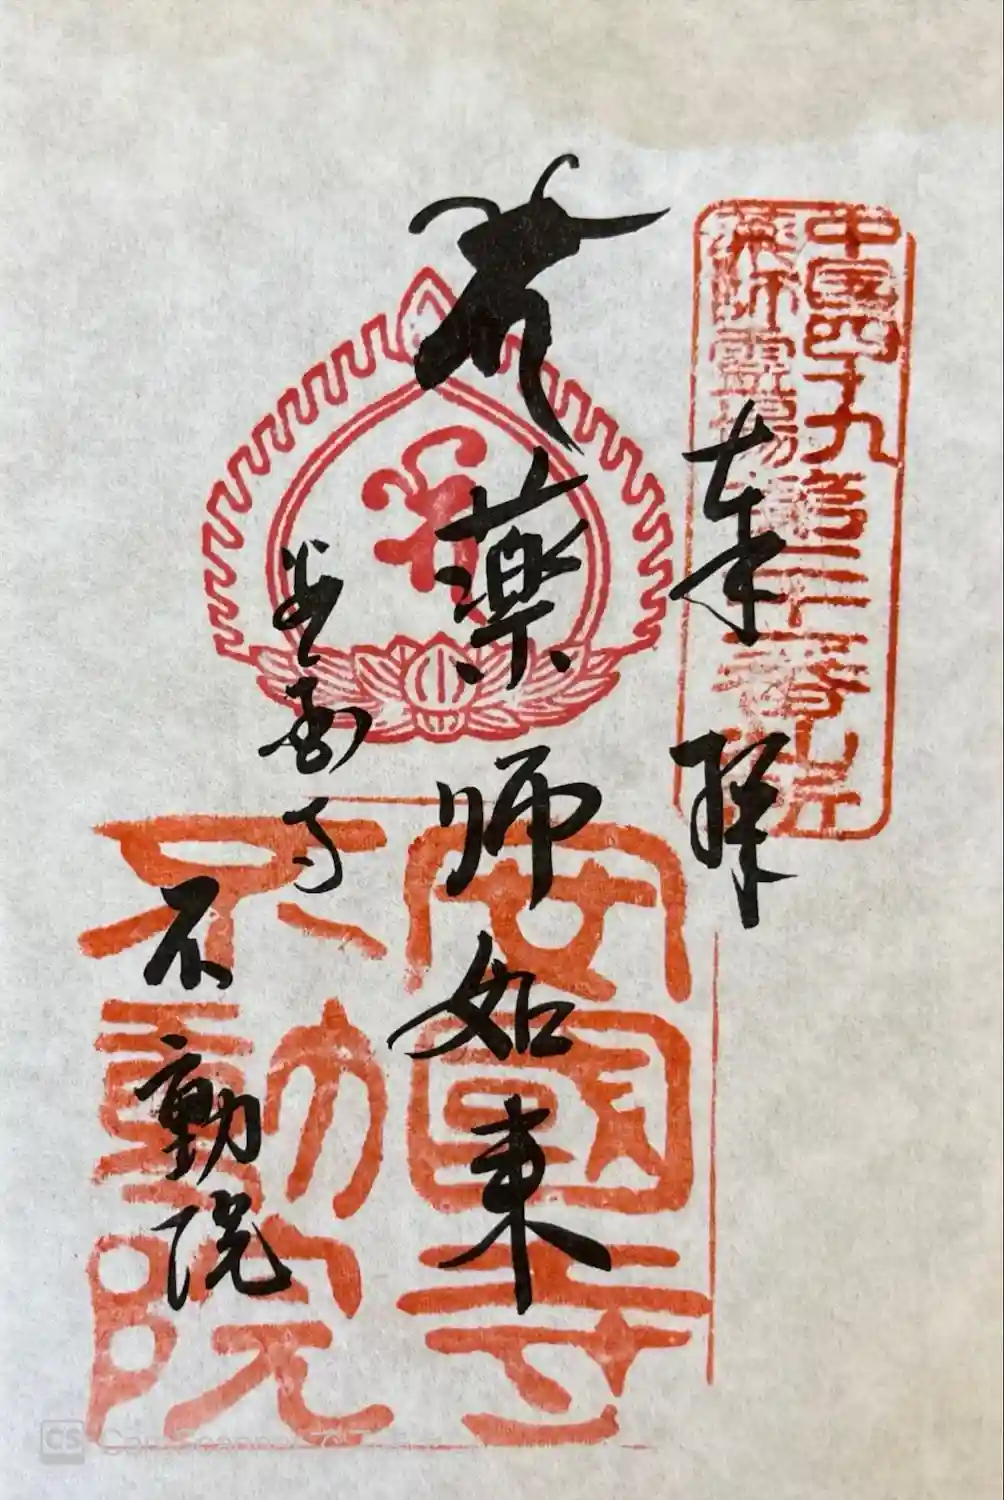 奉拝
中国四十九
薬師霊場第二十一番札所
薬師如来
安国寺
不動院
安國寺
不動院
CS